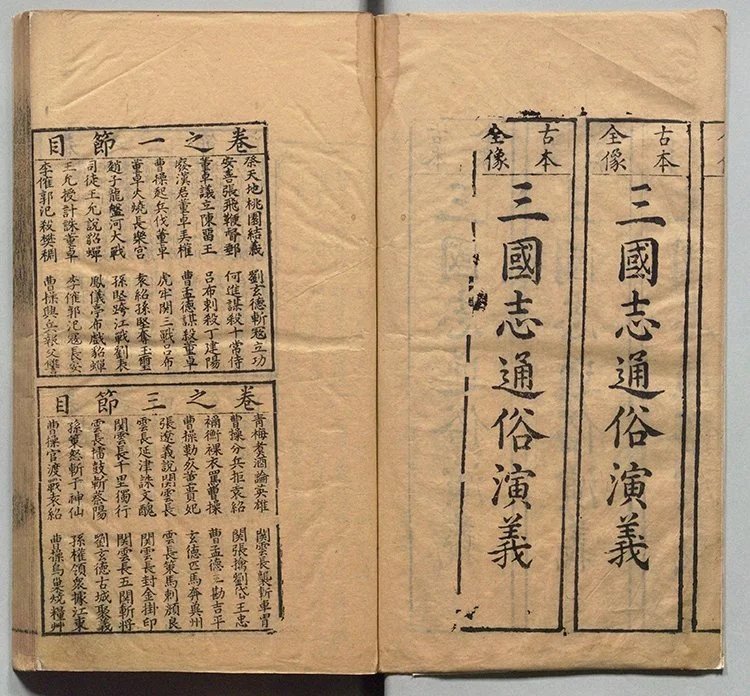 古本
全像
三國志通俗演義
古本
全像
三國志通俗演義
卷之一節目
祭天地桃園結義 劉玄德斬寇立功
安喜張飛鞭督郵 何進謀殺十常侍
董卓議立陳留王 呂布刺殺丁建陽
廢漢君董卓弄權 曹孟德謀殺董卓
曹操起兵伐董卓 虎牢関三戰呂布
董卓火燒長樂宮 袁紹孫堅奪玉璽
趙子龍盤河大戰 孫堅跨江戰劉表
司徒王允說貂蟬 鳳儀亭布戲貂蟬
王允授計誅董卓 李傕郭汜寇長安
李傕郭汜殺樊稠 曹操興兵報父讐
卷之三節目
青梅煮酒論英雄 関雲長襲斬車冑
曹操分兵拒袁紹 関張擒劉岱王忠
禰衡裸衣罵曹操 曹孟德三勘吉平
曹操勒死董貴妃 玄德匹馬奔冀州
張遼義說関雲長 雲長策馬刺顏良
雲長延津誅文醜 関雲長封金掛印
関雲長千里獨行 関雲長五関斬將
雲長擂鼓斬蔡陽 劉玄德古城聚義
孫策怒斬于神仙 孫權領衆據江東
曹操官渡戰袁紹 曹操烏巢燒糧艸